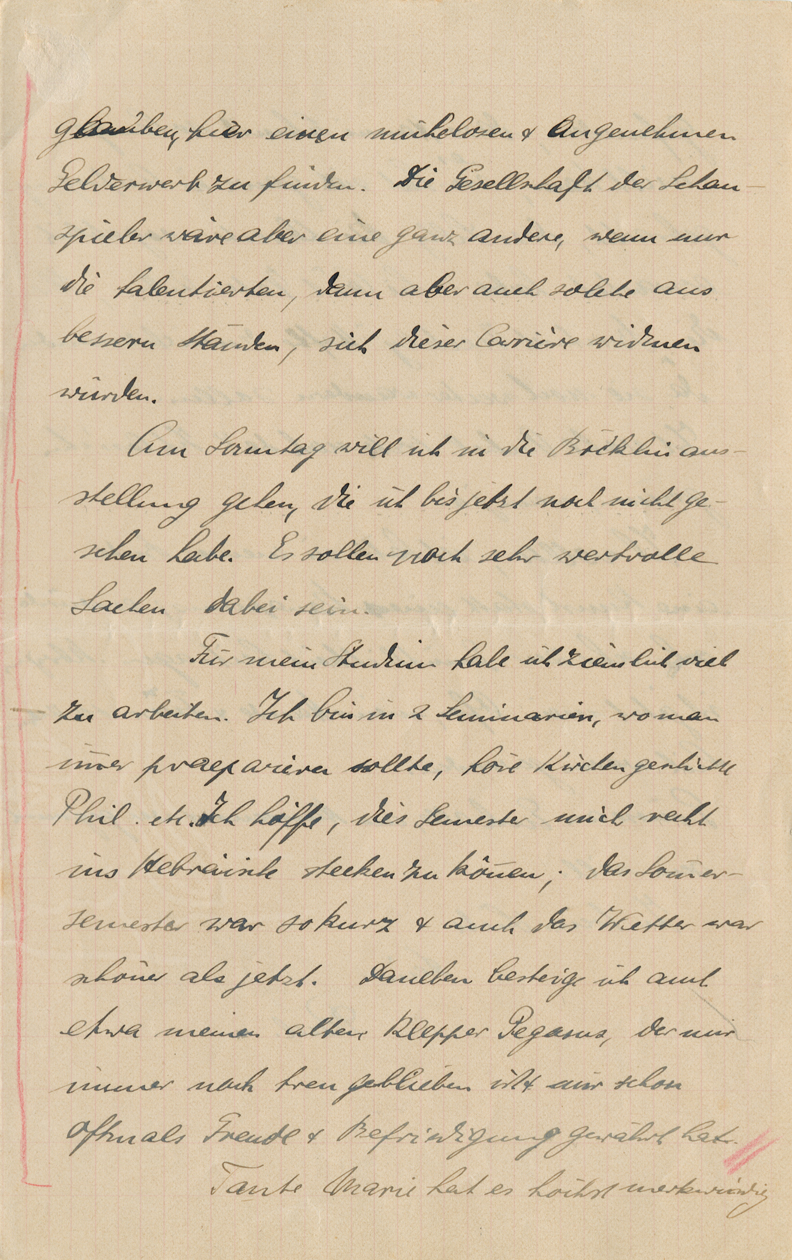 glauben, hier einen mühelosen & angenehmen
Gelderwerb zu finden. Die Gesellschaft der Schau-
spieler wäre aber eine ganz andere, wenn nur
die talentierten, dann aber auch solche aus
bessern Ständen, sich dieser Carrière widmen
würden.
Am Sonntag will ich in die Böcklinaus-
stellung gehen, die ich bis jetzt noch nicht ge-
sehen habe. Es sollen noch sehr wertvolle
Sachen dabei sein.
Für mein Studium habe ich ziemlich viel
zu arbeiten. Ich bin in 2 Seminarien, wo man
im̅er praeparieren sollte, höre Kirchengeschichte
Phil. etc. Ich hoffe, dies Semester mich recht
ins Hebräische stecken zu kön̅en; das Som̅er-
semester war so kurz & auch das Wetter war
schöner als jetzt. Daneben besteige ich auch
etwa meinen alten Klepper Pegasus, der mir
immer noch treu geblieben ist & mir schon
oftmals Freude & Befriedigung gewährt hat.
Tante Marie hat es höchst merkwürdig